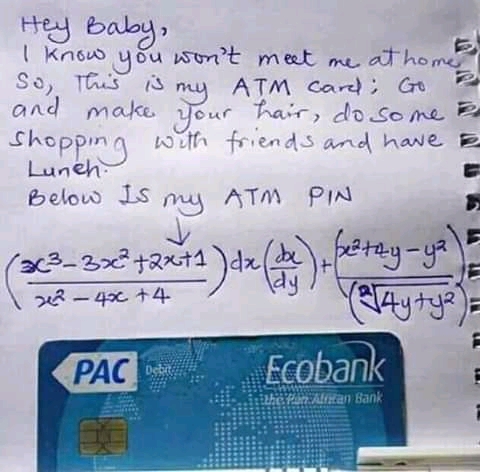 Hey Baby,
I know you won't meet me at home
So, This is my ATM card; Go
and make your hair, do some
shopping with friends and have
Lunch.
Below Is my ATM PIN
(x³-3x²+2x+1 / x² - 4x + 4) dx (dx/dy) + (x²+4y-y² / (²√4y+y²))
PAC Debit Ecobank
The Pan African Bank